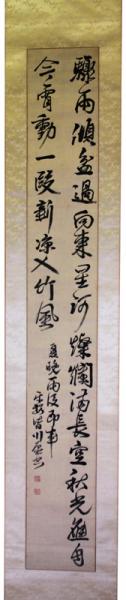 驟雨傾盆過向東星河燦爛滿長空秋光無自
今宵動一段新凉入竹風
夏晚雨後即事